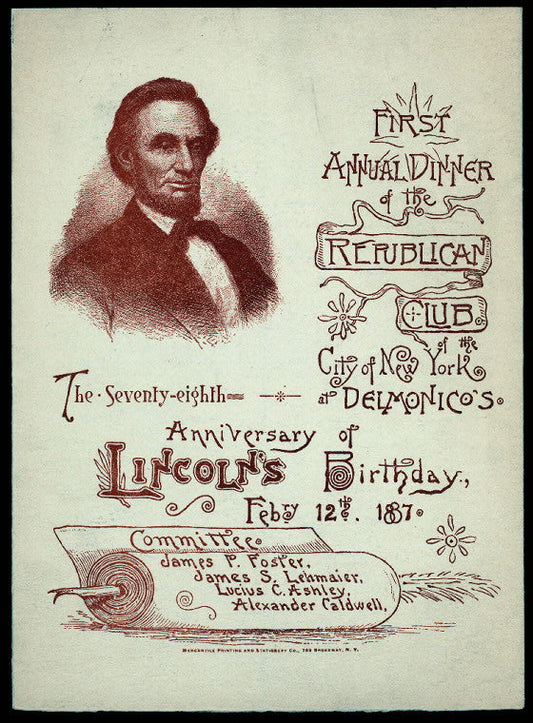 First
Annual Dinner
of the
Republican
Club
of the
City of New York
at Delmonico's.
The Seventy-eighth
Anniversary of
Lincoln's Birthday,
Febry 12th. 1887.
Committee.
James P. Foster,
James S. Lehmaier,
Lucius C. Ashley,
Alexander Caldwell,
Mercantile Printing and Stationery Co., 769 Broadway, N. Y.